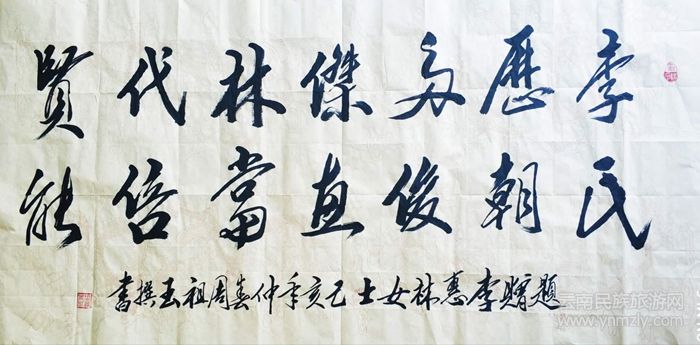 李氏
歷朝
多俊
傑惠
林當
代倍
賢能
題贈李惠林女士己亥年仲春周祖玉撰書
云南民族旅游网
www.ynmzly.com